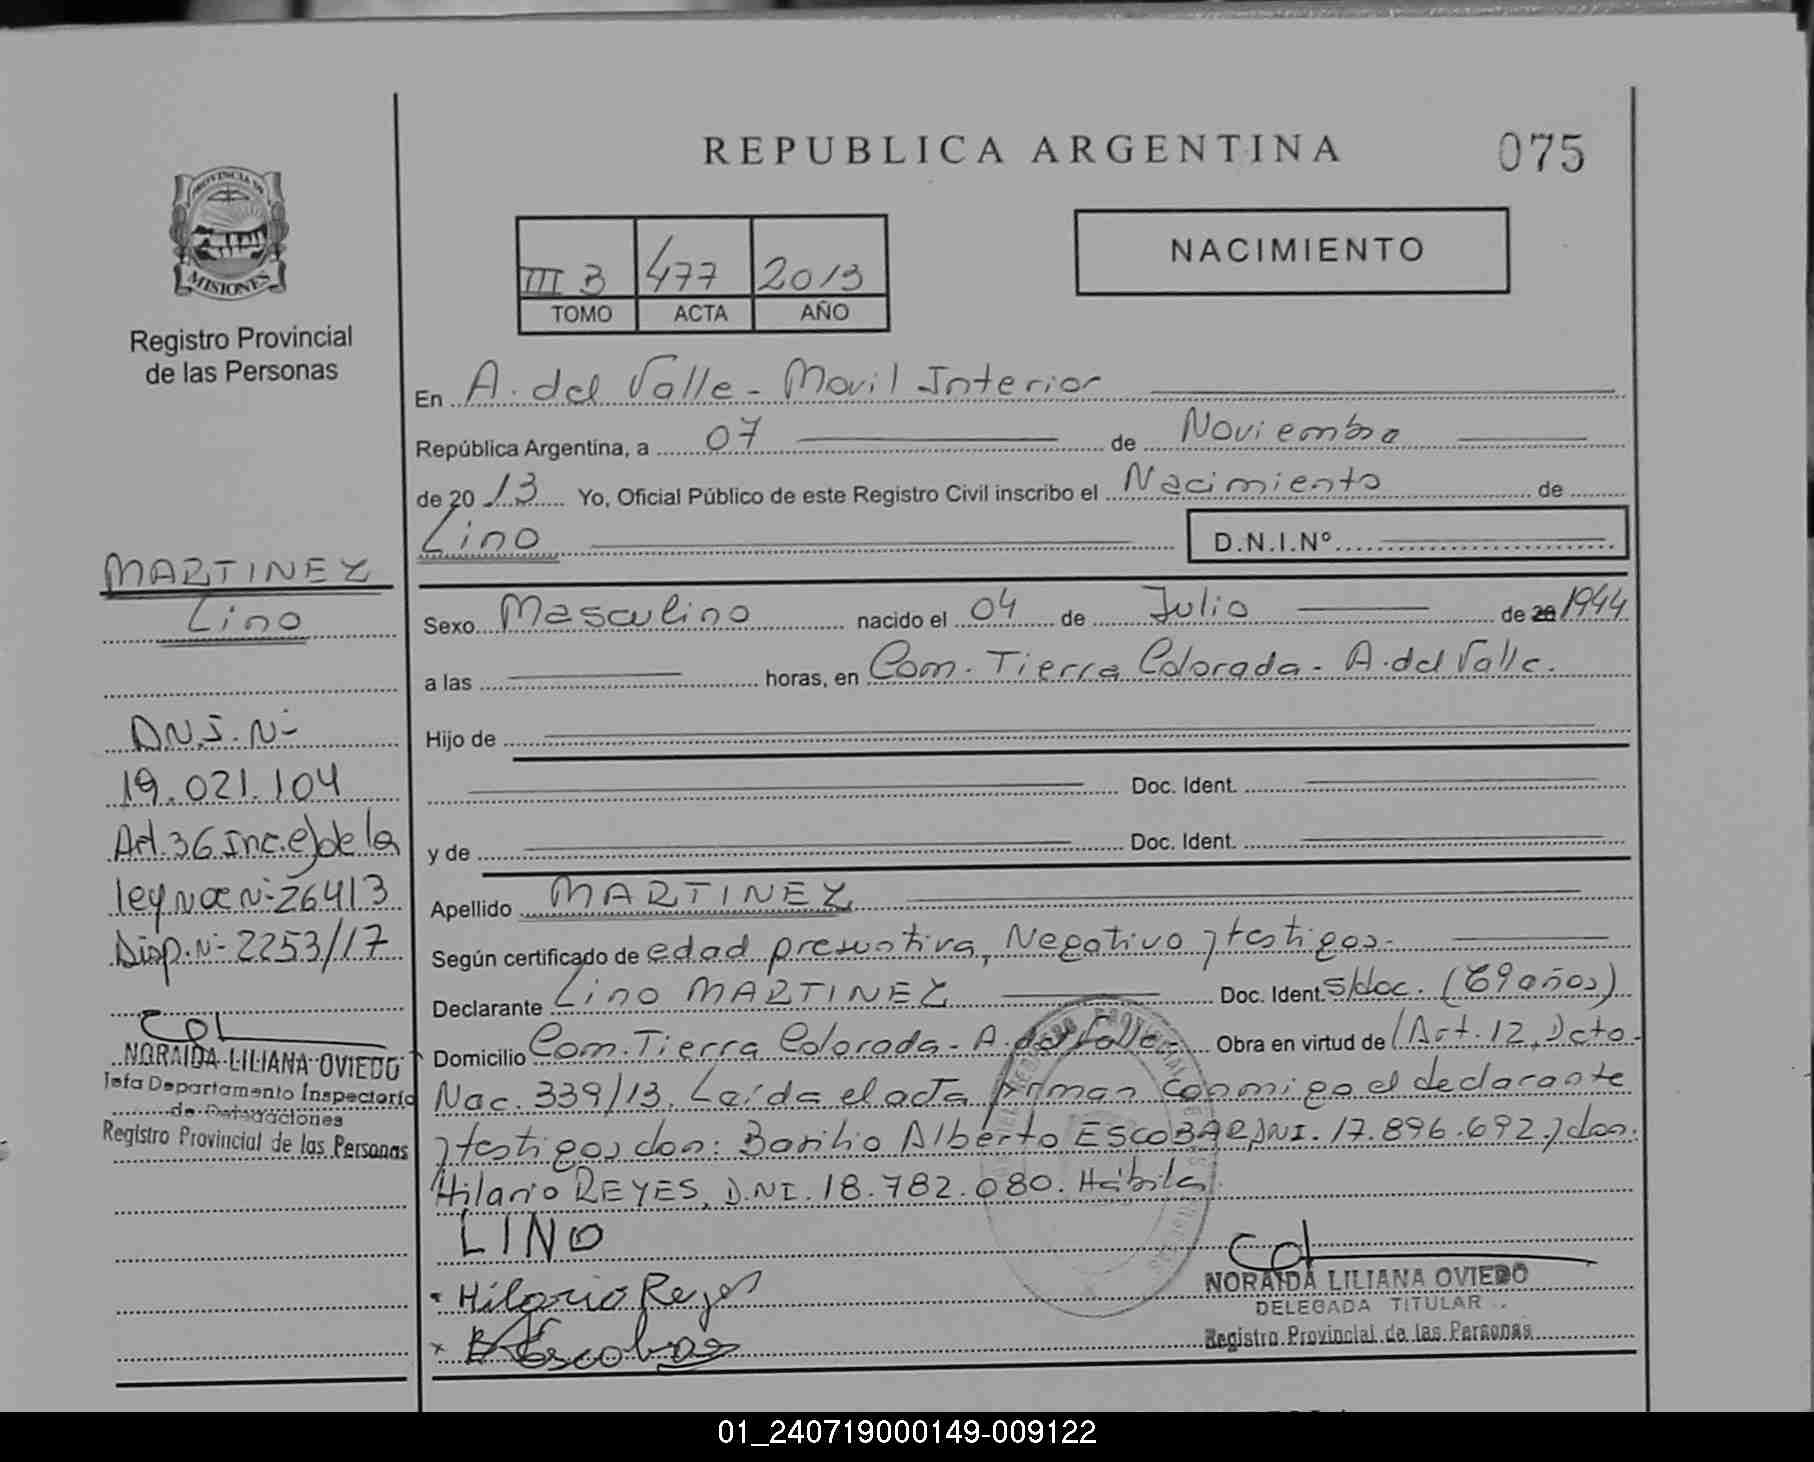 REPUBLICA ARGENTINA
075
PROVINCIA DE
MISIONES
Registro Provincial
de las Personas
III B 477 2013
TOMO ACTA AÑO
NACIMIENTO
En A. del Valle - Movil Interior
República Argentina, a 07 de Noviembre
de 2013 Yo, Oficial Público de este Registro Civil inscribo el Nacimiento de
Lino D.N.I.Nº
MARTINEZ
Lino
D.N.I. Nº
19.021.104
Art.36 Inc.e) de la
ley Nac Nº 26413
Disp. Nº 2253/17
NORAIDA LILIANA OVIEDO
Jefa Departamento Inspectoría
de Delegaciones
Registro Provincial de las Personas
Sexo Masculino nacido el 04 de Julio de 20 1944
a las horas, en Com. Tierra Colorada - A. del Valle.
Hijo de
Doc. Ident.
y de Doc. Ident.
Apellido MARTINEZ
Según certificado de edad presuntiva, Negativo y testigos.
Declarante Lino MARTINEZ Doc. Ident. s/doc. (69 años)
Domicilio Com. Tierra Colorada - A. del Valle - Obra en virtud de (Art. 12, Dcto.
Nac. 339/13. Leída el acta firman conmigo el declarante
y testigos don: Basilio Alberto ESCOBAR, DNI. 17.896.692 y don:
Hilario REYES, D.NI. 18.782.080. Hábiles.
LINO
Hilario Reyes
x B A Escobar
NORAIDA LILIANA OVIEDO
DELEGADA TITULAR
Registro Provincial de las Personas
01_240719000149-009122